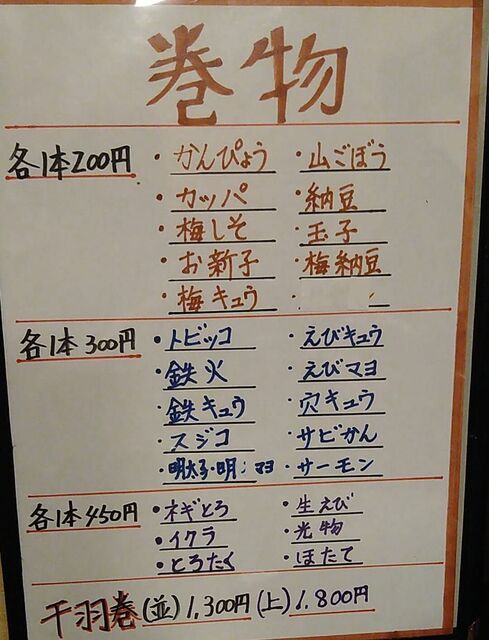 巻物
各1本200円
・かんぴょう ・山ごぼう
・カッパ ・納豆
・梅しそ ・玉子
・お新子 ・梅納豆
・梅キュウ
各1本300円
・トビッコ ・えびキュウ
・鉄火 ・えびマヨ
・鉄キュウ ・穴キュウ
・スジコ ・サビかん
・明太子・明マヨ ・サーモン
各1本450円
・ネギとろ ・生えび
・イクラ ・光物
・とろたく ・ほたて
千羽巻(並)1,300円(上)1.800円